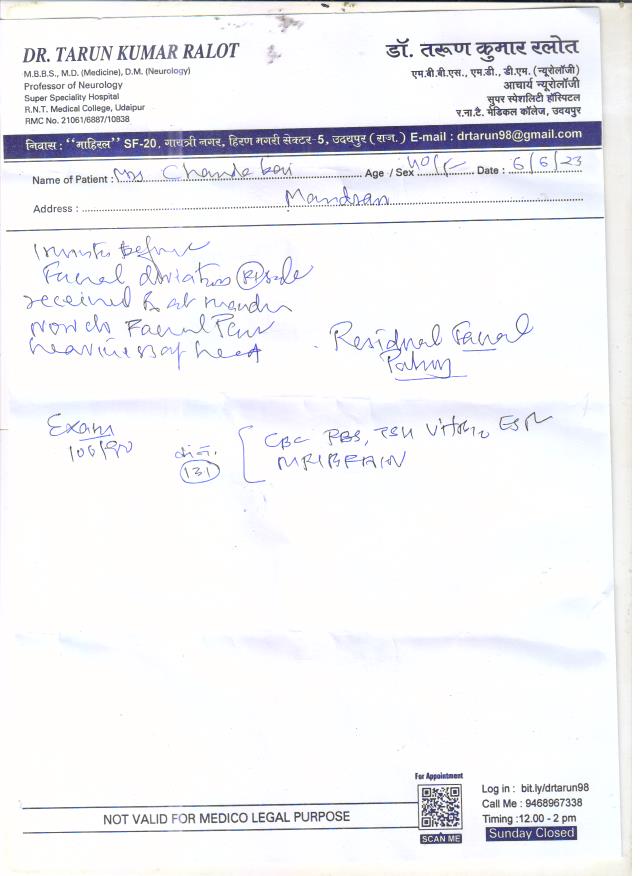 DR. TARUN KUMAR RALOT
M.B.B.S., M.D. (Medicine), D.M. (Neurology)
Professor of Neurology
Super Speciality Hospital
R.N.T. Medical College, Udaipur
RMC No. 21061/6887/10838
डॉ. तरूण कुमार रलोत
एम.बी.बी.एस., एम.डी., डी.एम. (न्यूरोलॉजी)
आचार्य न्यूरोलॉजी
सुपर स्पेशलिटी हॉस्पिटल
र.ना.टै. मेडिकल कॉलेज, उदयपुर
निवास : "माहिरल" SF-20, गायत्री नगर, हिरण मगरी सेक्टर-5, उदयपुर (राज.) E-mail : drtarun98@gmail.com
Name of Patient : Mrs Age / Sex 40/F Date : 6/6/23
Address :
Before
Facial deviation Rt side
received at
now c/o Facial
heaviness of head
Residual Facial
Palsy
Exam
100/90
131
CBC RBS, TSH Vit B12 ESR
MRI BRAIN
For Appointment
SCAN ME
NOT VALID FOR MEDICO LEGAL PURPOSE
Log in : bit.ly/drtarun98
Call Me : 9468967338
Timing :12.00 - 2 pm
Sunday Closed